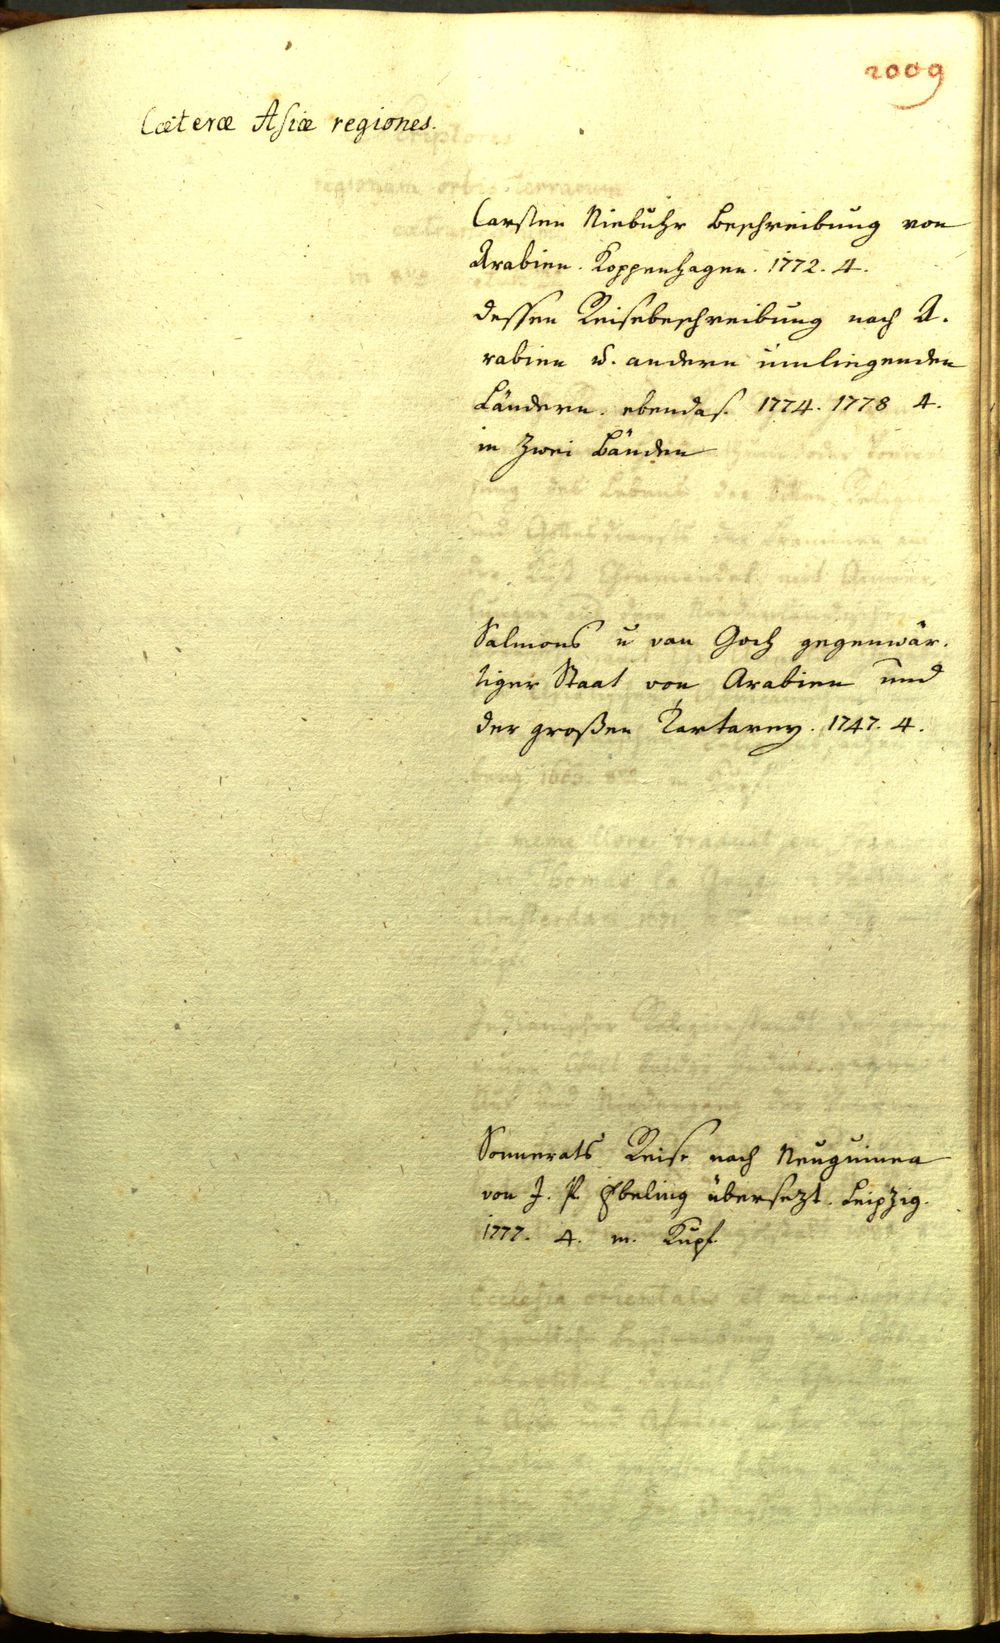 2009
Cæteræ Asiæ regiones.
Carsten Niebuhr Beschreibung von
Arabien. Koppenhagen. 1772. 4.
dessen Reisebeschreibung nach A.
rabien u. andern umliegenden
Ländern. ebendas. 1774. 1778 4.
in zwei Bänden
Salmons u van Goch gegenwär.
tiger Staat von Arabien und
der großen Tartarey. 1747. 4.
Sonnerats Reise nach Neuguinea
von J. P. Ebeling übersezt. Leipzig.
1777. 4. m. Kupf.